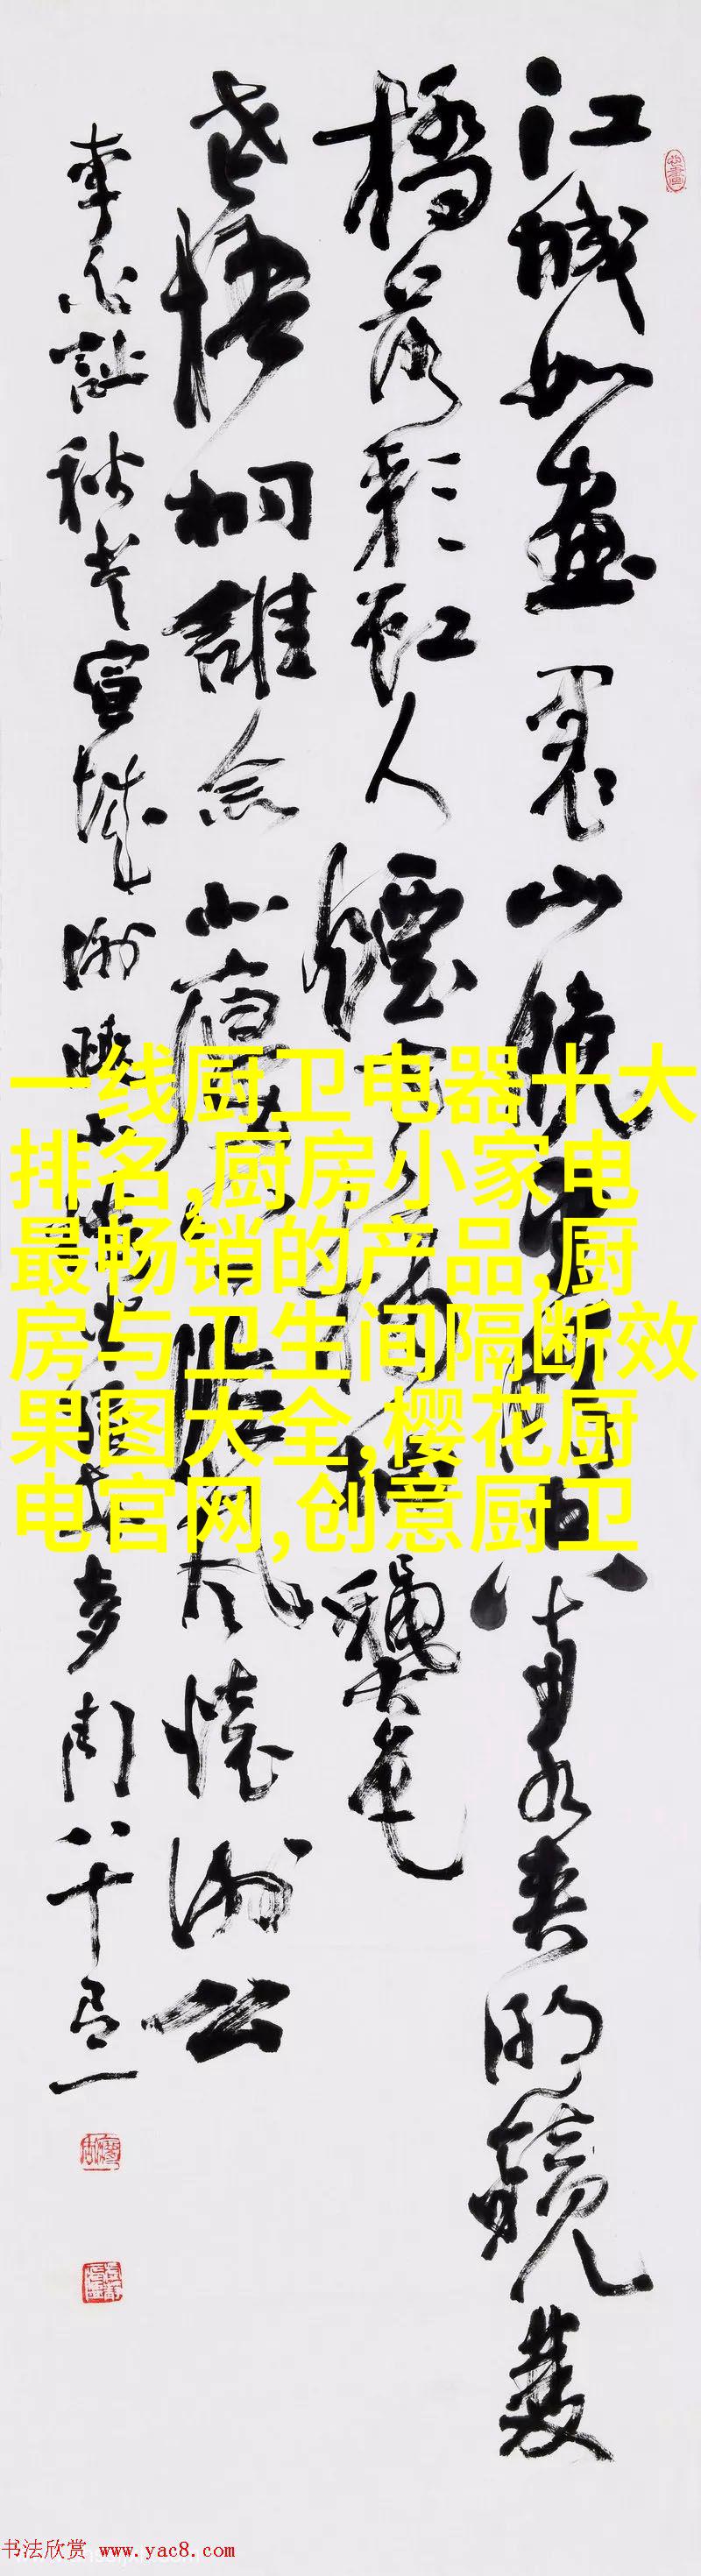 江城如画里山晚望晴空两水夹明镜双
桥落彩虹人烟寒橘柚秋色
老梧桐谁念北楼上临风怀谢公
李白诗秋登宣城谢朓北楼
八十
一线厨卫电器十大
排名,厨房小家电
最畅销的产品,厨
房与卫生间隔断效
果图大全,樱花厨
电官网,创意厨卫
书法欣赏 www.yac8.com